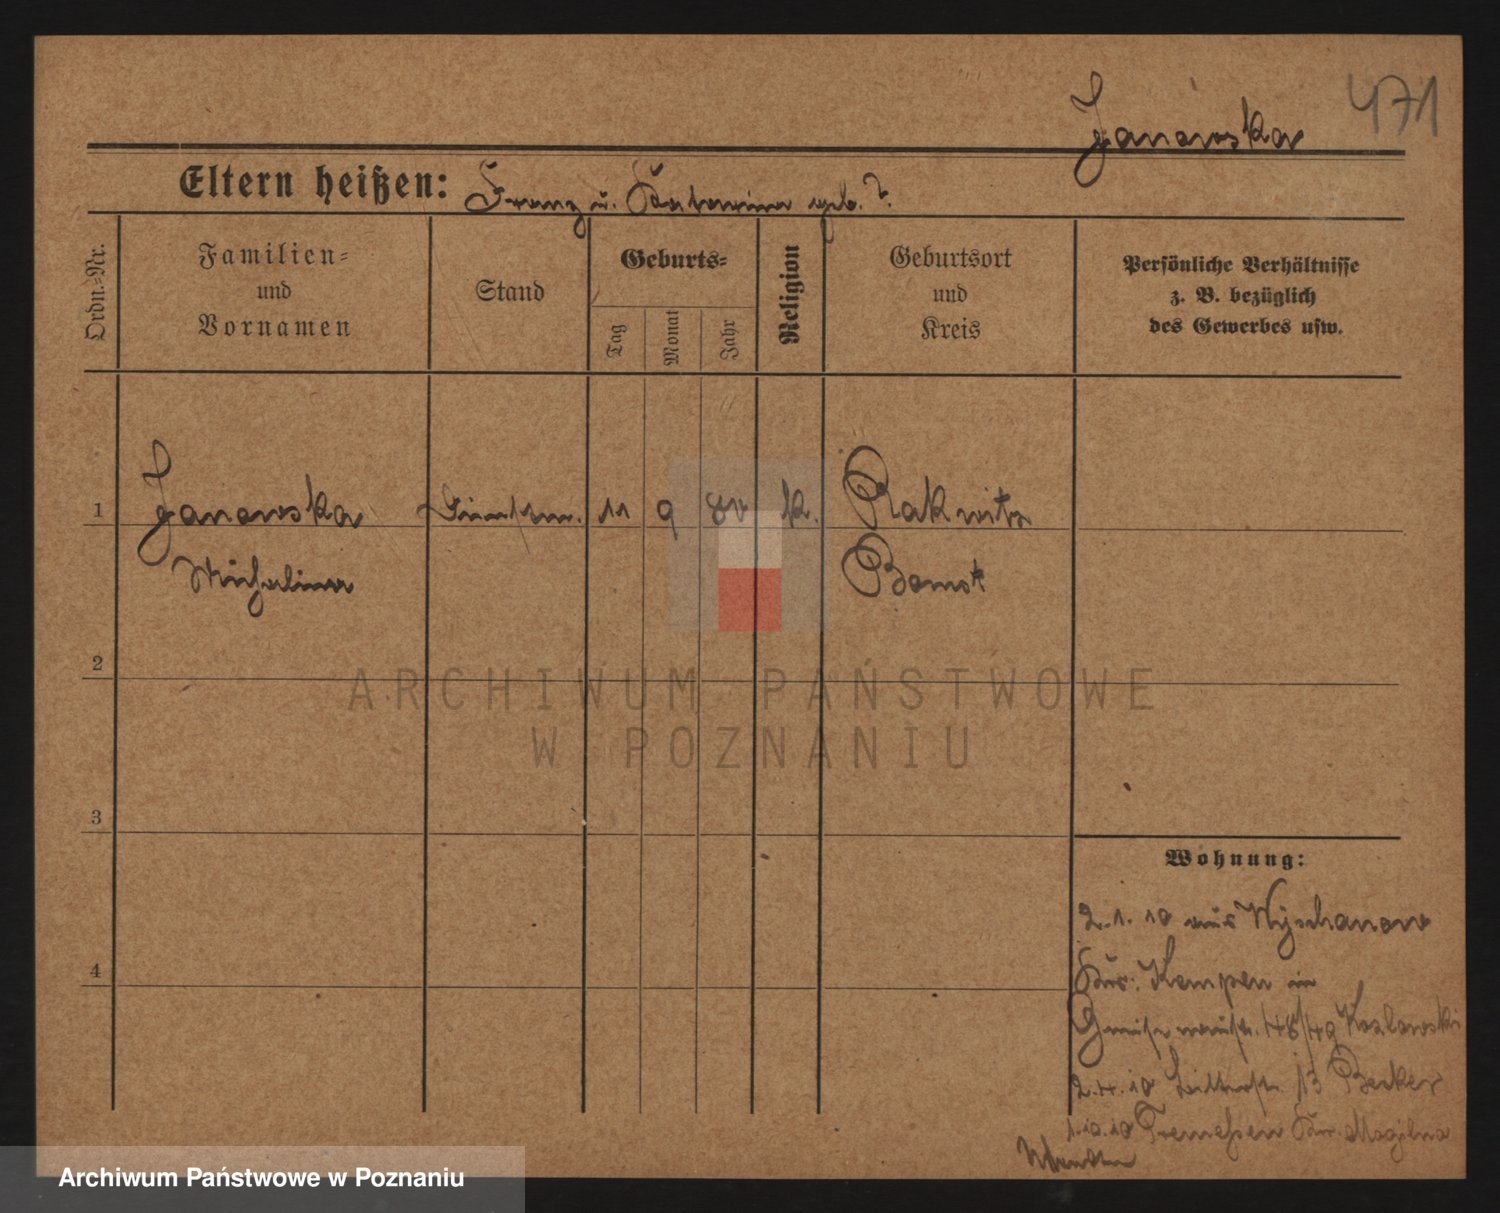 Janowska 471
Eltern heißen: Franz u. Katarina geb. ?
Ordn.-Nr.
Familien-
und
Vornamen
Stand
Geburts-
Tag
Monat
Jahr
Religion
Geburtsort
und
Kreis
Persönliche Verhältnisse
z. B. bezüglich
des Gewerbes usw.
1 Janowska 11 9 k. Rakwitz
Michalina Bomst
2
3
4
Wohnung:
2.1.10 aus Wyschanow
Kr: Kempen in
48/49 Kozlowski
2.4.10 13 Becker
1.10.10 Tremessen Kr. Mogilno
ARCHIWUM PAŃSTWOWE
W POZNANIU
Archiwum Państwowe w Poznaniu